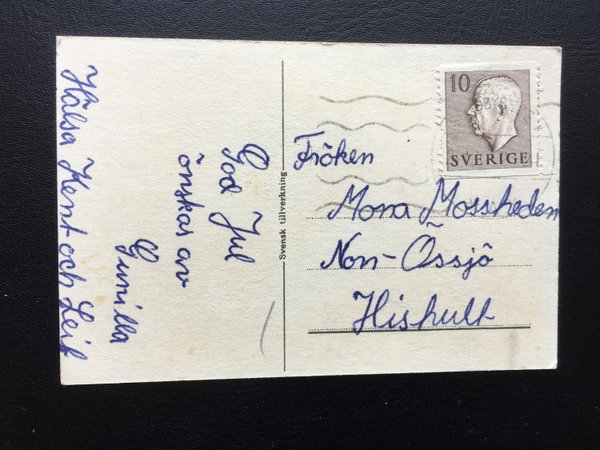 Hälsa Kent och Leif
God Jul
önskas av
Gunilla
Svensk tillverkning
10
SVERIGE
Fröken
Mona Mossheden
Non-Össjö
Hishult